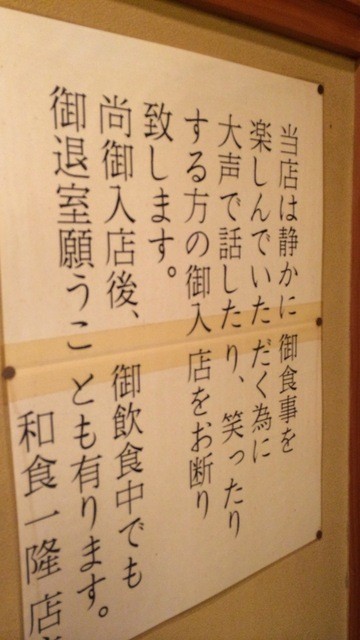 当店は静かに御食事を
楽しんでいただく為に
大声で話したり、笑ったり
する方の御入店をお断り
致します。
尚御入店後、御飲食中でも
御退室願うことも有ります。
和食一隆 店